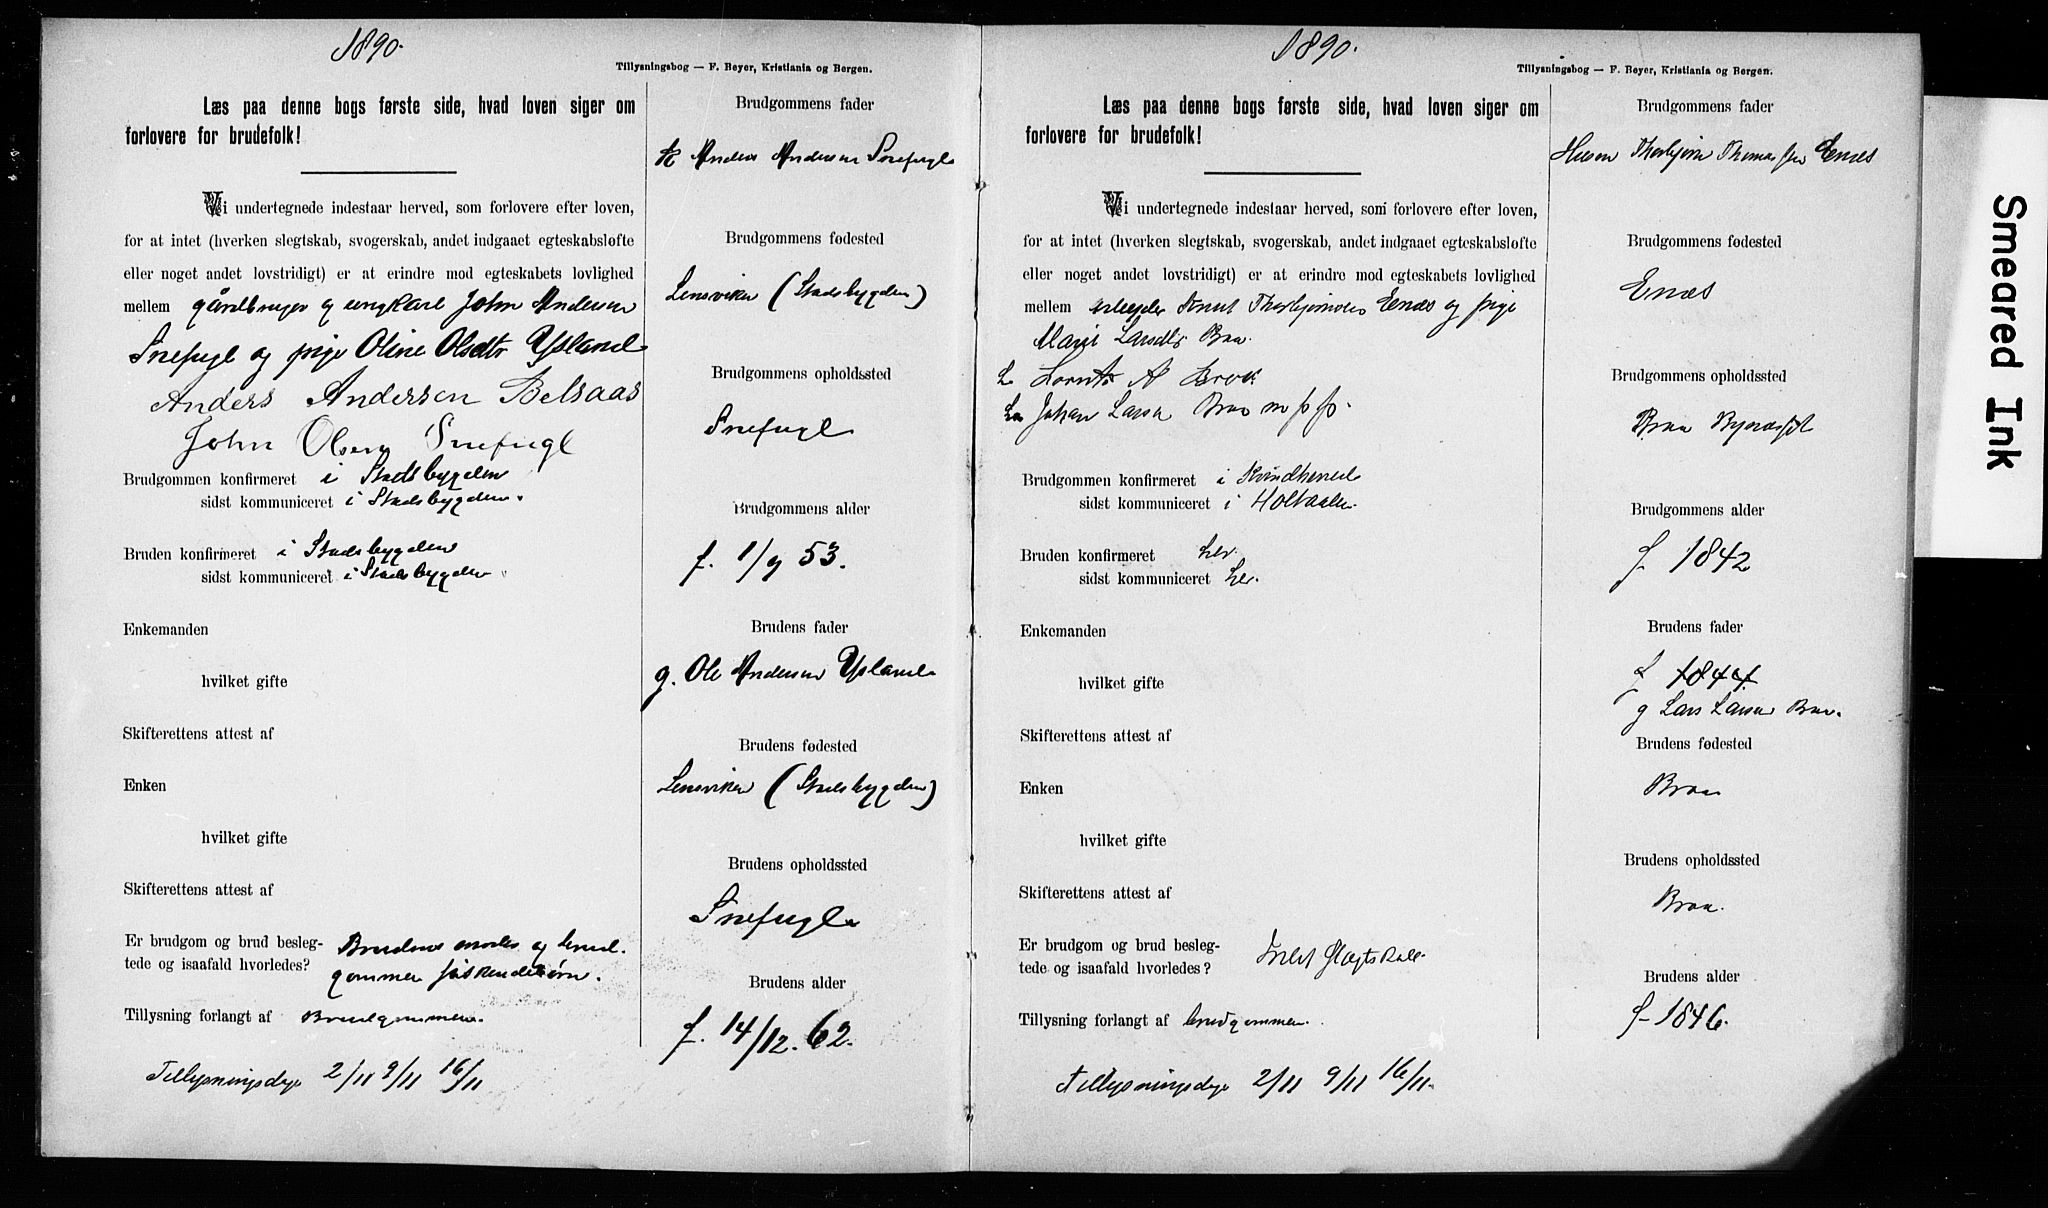 1890.
Tillysningsbog — F. Beyer, Kristiania og Bergen.
Læs paa denne bogs første side, hvad loven siger om
forlovere for brudefolk!
Vi undertegnede indestaar herved, som forlovere efter loven,
for at intet (hverken slegtskab, svogerskab, andet indgaaet egteskabsløfte
eller noget andet lovstridigt) er at erindre mod egteskabets lovlighed
mellem gårdbruger og ungkarl John Andersen
Snefugl og pige Oline Olsdtr Ysland
Anders Andersen Belsaas
John Olsen Snefugl
Brudgommen konfirmeret i Stadsbygden
sidst kommuniceret i Stadsbygden.
Bruden konfirmeret i Stadsbygden
sidst kommuniceret i Stadsbygden
Enkemanden
hvilket gifte
Skifterettens attest af
Enken
hvilket gifte
Skifterettens attest af
Er brudgom og brud besleg-
tede og isaafald hvorledes? Brudens moder og brud-
gommen søskendebørn.
Tillysning forlangt af Brudgommen.
Tillysningsdage 2/11 9/11 16/11
Brudgommens fader
Anders Andersen Snefugl
Brudgommens fødested
Lensviken (Stadsbygden)
Brudgommens opholdssted
Snefugl
Brudgommens alder
f. 1/9 53.
Brudens fader
g. Ole Andersen Ysland
Brudens fødested
Lensviken (Stadsbygden)
Brudens opholdssted
Snefugl
Brudens alder
f. 14/12. 62.
1890.
Tillysningsbog — F. Beyer, Kristiania og Bergen.
Læs paa denne bogs første side, hvad loven siger om
forlovere for brudefolk!
Vi undertegnede indestaar herved, som forlovere efter loven,
for at intet (hverken slegtskab, svogerskab, andet indgaaet egteskabsløfte
eller noget andet lovstridigt) er at erindre mod egteskabets lovlighed
mellem arbeyder Knut Thorbjørnsen Enæs og pige
Marit Larsdtr Braa.
Lornts A Braa
Johan Larsen Braa m p p.
Brudgommen konfirmeret i Kvindherred
sidst kommuniceret i Holtaalen.
Bruden konfirmeret her.
sidst kommuniceret her.
Enkemanden
hvilket gifte
Skifterettens attest af
Enken
hvilket gifte
Skifterettens attest af
Er brudgom og brud besleg-
tede og isaafald hvorledes? Intet Slægtskab.
Tillysning forlangt af brudgommen.
Tillysningsdage 2/11 9/11 16/11.
Brudgommens fader
Husm Thorbjørn Thomassen Enæs
Brudgommens fødested
Enæs
Brudgommens opholdssted
Braa Bynæsset
Brudgommens alder
f. 1842
Brudens fader
f 1844
g Lars Larsen Braa.
Brudens fødested
Braa
Brudens opholdssted
Braa.
Brudens alder
f. 1846.
Smeared Ink